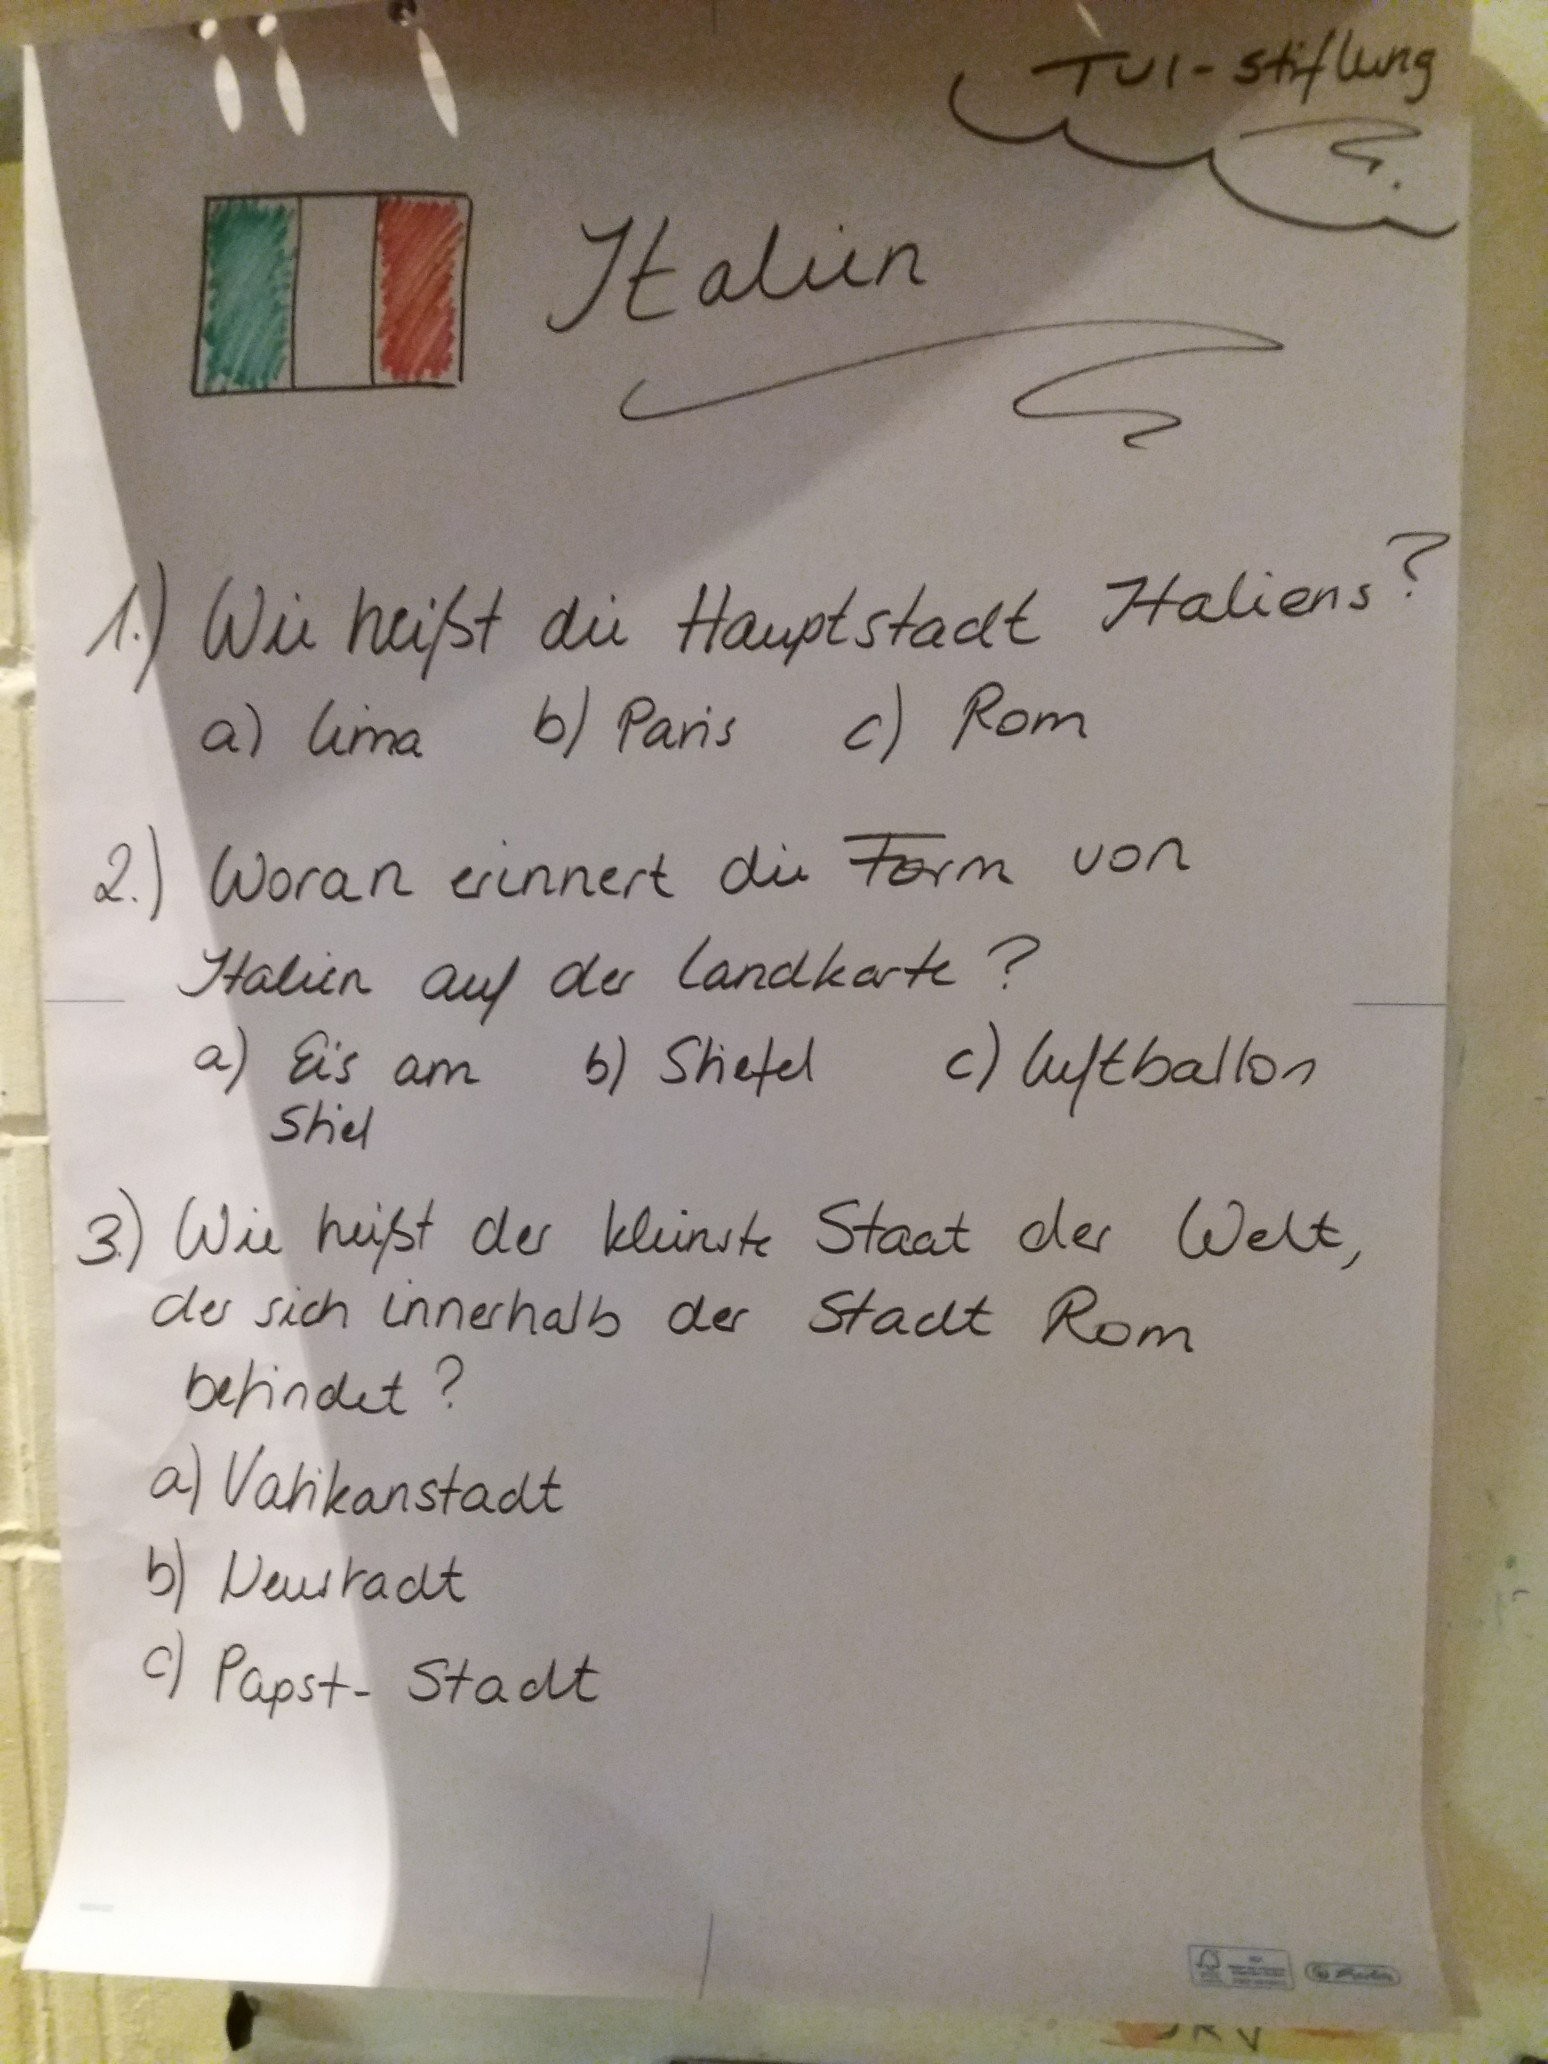 TUI-Stiftung
Italien
1.) Wie heißt die Hauptstadt Italiens?
a) Lima b) Paris c) Rom
2.) Woran erinnert die Form von
Italien auf der Landkarte?
a) Eis am b) Stiefel c) Luftballon
Stiel
3.) Wie heißt der kleinste Staat der Welt,
der sich innerhalb der Stadt Rom
befindet?
a) Vatikanstadt
b) Neustadt
c) Papst- Stadt